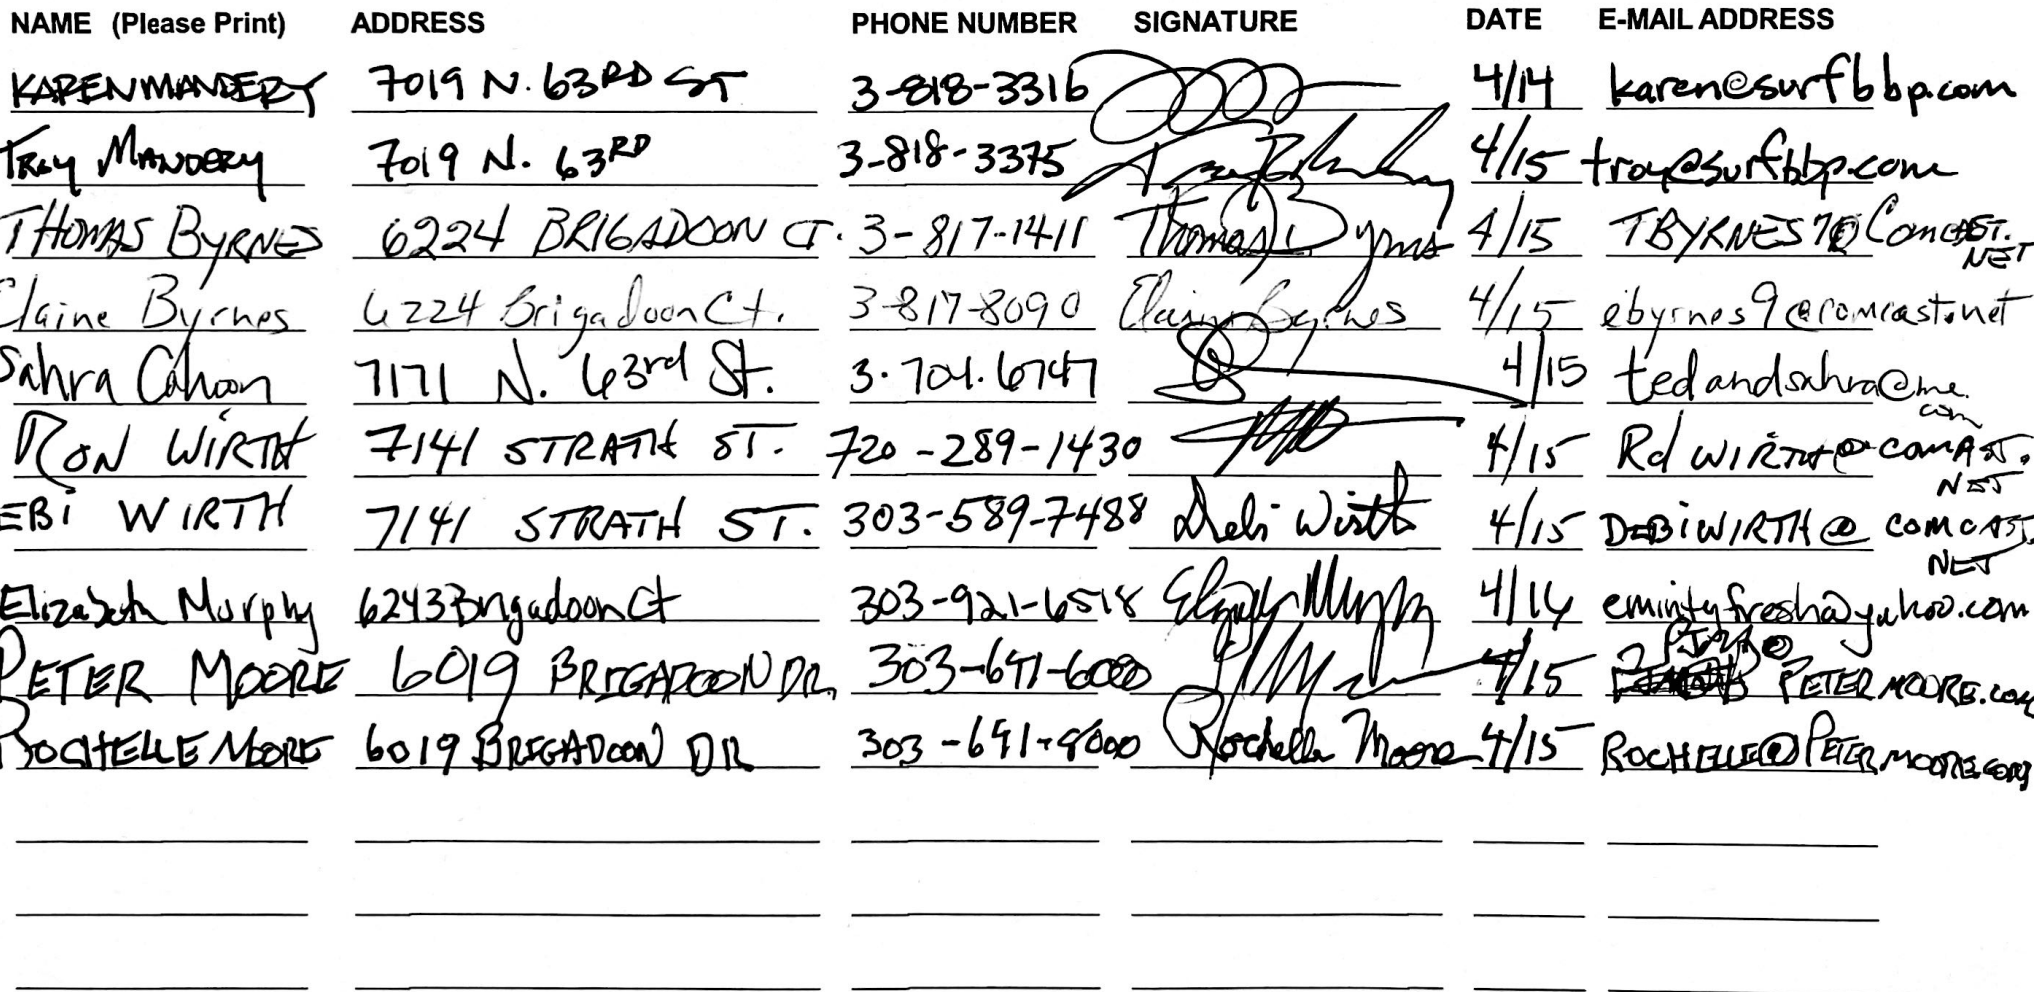 NAME (Please Print) ADDRESS PHONE NUMBER SIGNATURE DATE E-MAIL ADDRESS
KAREN MANDERY 7019 N. 63RD ST 3-818-3316 4/14 karen@surfbbp.com
TROY MANDERY 7019 N. 63RD 3-818-3375 4/15 troy@surfbbp.com
THOMAS BYRNES 6224 BRIGADOON CT. 3-817-1411 Thomas Byrnes 4/15 TBYRNES7@COMCAST.
NET
Elaine Byrnes 6224 Brigadoon Ct. 3-817-8090 Elaine Byrnes 4/15 ebyrnes9@comcast.net
Sahra Cahoon 7171 N. 63rd St. 3.704.6747 4/15 tedandsahra@me.
com
RON WIRTH 7141 STRATH ST. 720-289-1430 4/15 Rd WIRTH@COMAST.
NET
EBI WIRTH 7141 STRATH ST. 303-589-7488 Debi Wirth 4/15 DEBIWIRTH@COMCAST.
NET
Elizabeth Murphy 6243 Brigadoon Ct 303-921-6518 Elizabeth Murphy 4/14 emintyfresh@yahoo.com
PETER MOORE 6019 BRIGADOON DR. 303-641-6000 4/15 PETERMOORE.COM
ROCHELLE MOORE 6019 BRIGADOON DR 303-641-8000 Rochelle Moore 4/15 ROCHELLE@PETERMOORE.COM